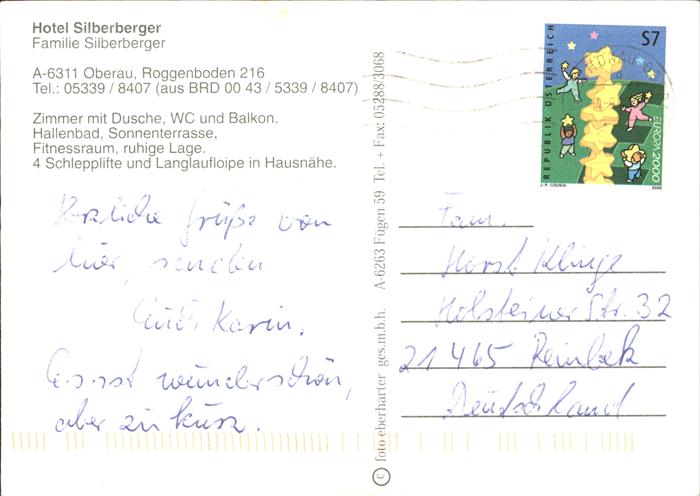 Hotel Silberberger
Familie Silberberger
A-6311 Oberau, Roggenboden 216
Tel.: 05339 / 8407 (aus BRD 00 43 / 5339 / 8407)
Zimmer mit Dusche, WC und Balkon.
Hallenbad, Sonnenterrasse,
Fitnessraum, ruhige Lage.
4 Schlepplifte und Langlaufloipe in Hausnähe.
Herzliche Grüße von
hier, senden
Karin.
Es ist wunderschön,
aber zu kurz.
© foto eberharter ges.m.b.h. A-6263 Fügen 59 Tel. + Fax: 05288/3068
REPUBLIK ÖSTERREICH
S7
EUROPA 2000
J.-P. COUSIN
2000
Fam.
Horst Klinge
Holsteiner Str. 32
21465 Reinbek
Deutschland